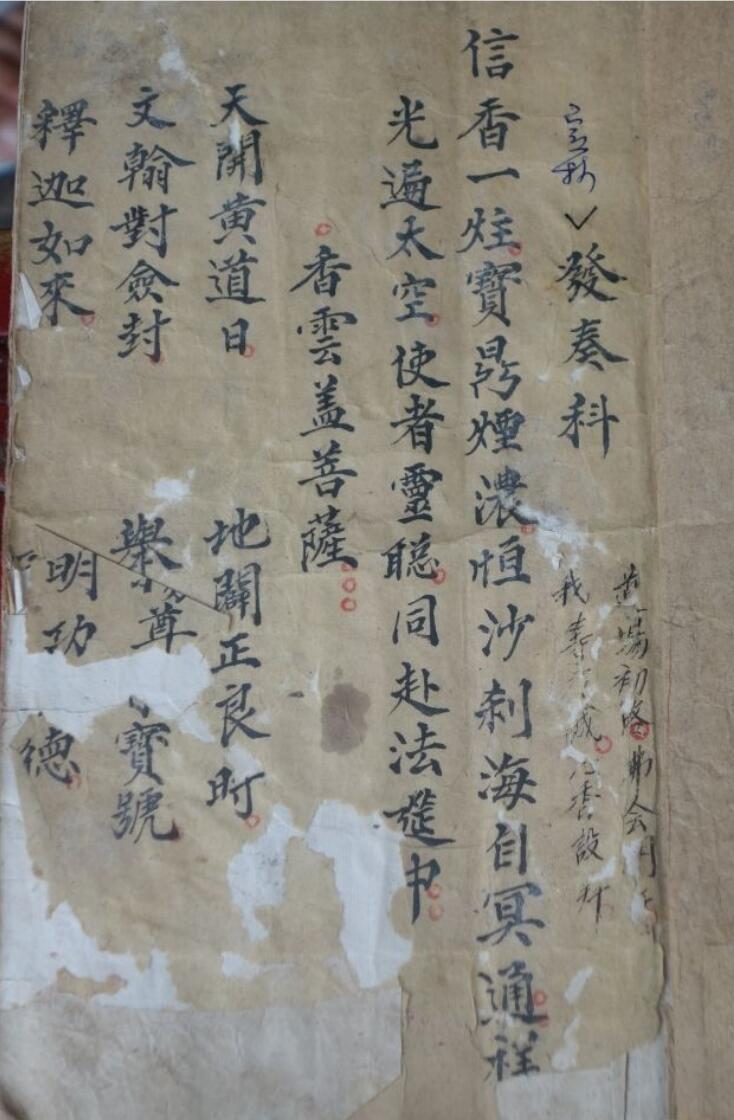 初
誠心香設
發奏科
信香一炷寶鼎煙濃恒沙刹海自冥通祥
光遍太空使者靈聡同赴法筵中
香雲盖菩薩
天開黄道日 地闢正良时
文翰對僉封 舉尊 寶號
釋迦如來 明功 德